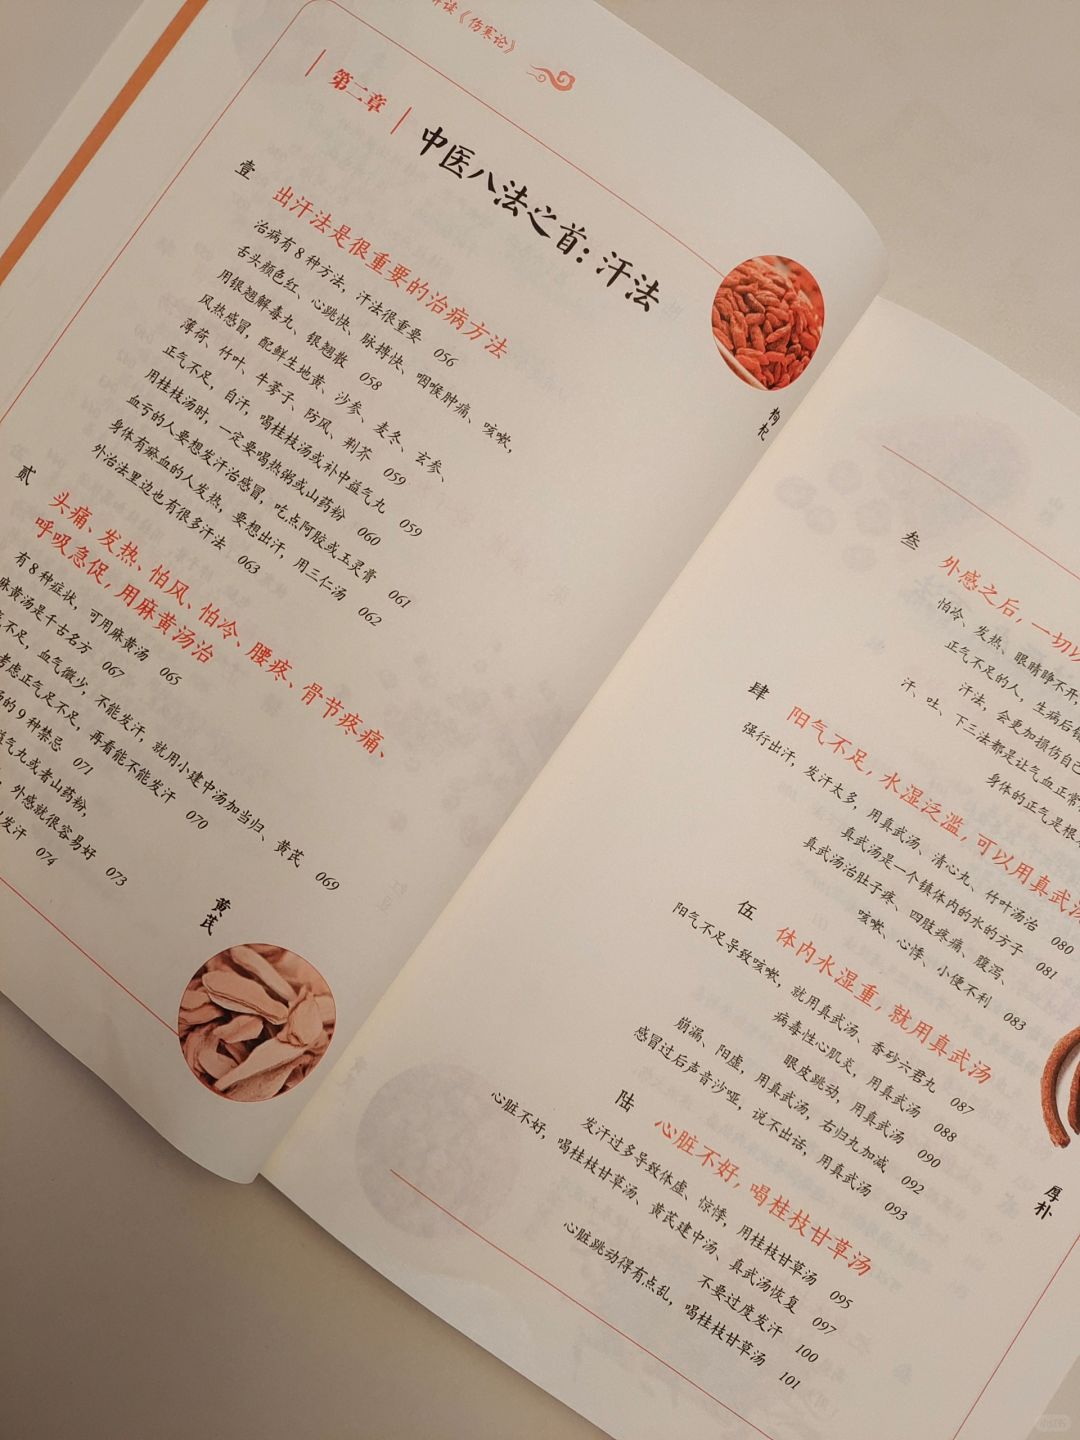 读《伤寒论》
第二章
中医八法之首：汗法
壹
出汗法是很重要的治病方法
治病有8种方法，汗法很重要 056
舌头颜色红、心跳快、脉搏快、咽喉肿痛、咳嗽，
用银翘解毒丸、银翘散 058
风热感冒，配鲜生地黄、沙参、麦冬、玄参、
薄荷、竹叶、牛蒡子、防风、荆芥 059
正气不足，自汗，喝桂枝汤或补中益气丸 059
用桂枝汤时，一定要喝热粥或山药粉 060
血亏的人要想发汗治感冒，吃点阿胶或玉灵膏 061
身体有瘀血的人发热，要想出汗，用三仁汤 062
外治法里边也有很多汗法 063
贰
头痛、发热、怕风、怕冷、腰疼、骨节疼痛、
呼吸急促，用麻黄汤治
有8种症状，可用麻黄汤 065
麻黄汤是千古名方 067
不足，血气微少，不能发汗，就用小建中汤加当归、黄芪 069
考虑正气足不足，再看能不能发汗 070
汤的9种禁忌 071
益气丸或者山药粉，
外感就很容易好 073
发汗 074
枸杞
黄芪
叁
外感之后，一切以
怕冷、发热、眼睛睁不开，
正气不足的人，生病后错
汗法，会更加损伤自己
汗、吐、下三法都是让气血正常
身体的正气是根本
肆
阳气不足，水湿泛滥，可以用真武汤
强行出汗，发汗太多，用真武汤、清心丸、竹叶汤治 080
真武汤是一个镇体内的水的方子 081
真武汤治肚子疼、四肢疼痛、腹泻、
咳嗽、心悸、小便不利 083
伍
体内水湿重，就用真武汤
阳气不足导致咳嗽，就用真武汤、香砂六君丸 087
病毒性心肌炎，用真武汤 088
眼皮跳动，用真武汤 090
崩漏、阳虚，用真武汤，右归丸加减 092
感冒过后声音沙哑，说不出话，用真武汤 093
陆
心脏不好，喝桂枝甘草汤
发汗过多导致体虚、惊悸，用桂枝甘草汤 095
心脏不好，喝桂枝甘草汤、黄芪建中汤、真武汤恢复 097
不要过度发汗 100
心脏跳动得有点乱，喝桂枝甘草汤 101
厚朴